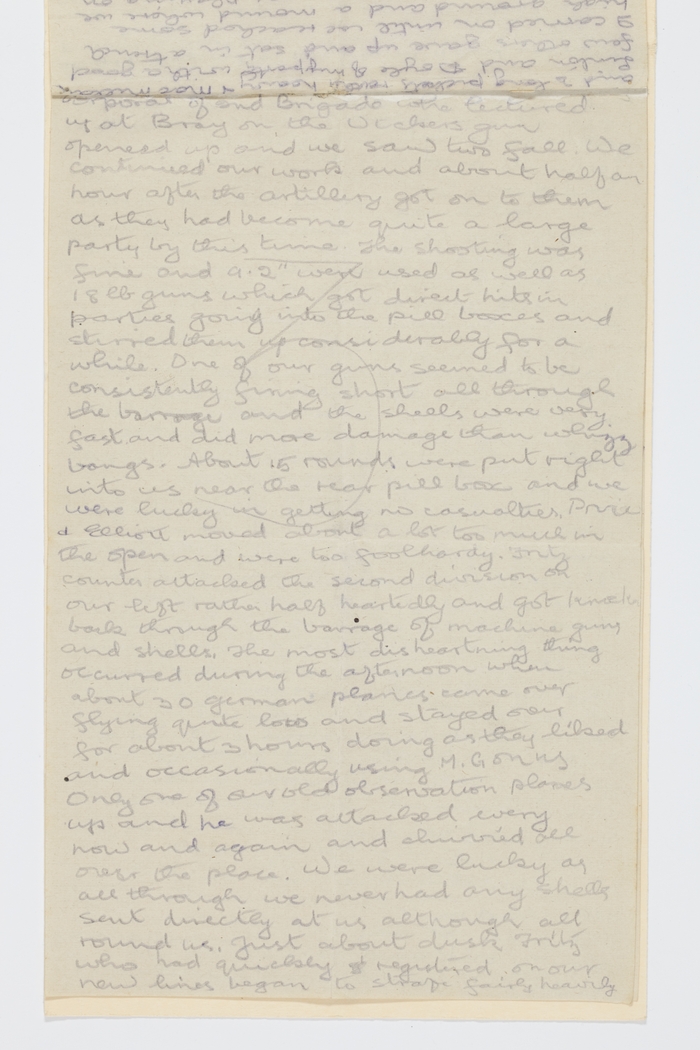 I carried on until we reached some
few others gave up and sat in a trench
parao of 2nd Brigade who lectured
us at Bray on the Vickers gun
openeed up and we saw two fall. We
continued our work and about half an
hour after the artillery got on to them
as they had become quite a large
party by this time. The shooting was
fine and 9.2" were used as well as
18 lb guns which got direct hits in
parties going into the pill boxes and
stirred them up considerably for a
while. One of our guns seemed to be
consistently firing short all through
the barrage and the shells were very
fast and did more damage than whizz
bangs. About 15 rounds were put right
into us near the rear pill box and we
were lucky in getting no casualties, Price
& Elliott moved about a lot too much in
the open and were too foolhardy. Fritz
counter attacked the second division on
our left rather half heartedly and got knock
back through the barrage of machine guns
and shells. The most disheartning thing
occurred during the afternoon when
about 30 german planes came over
flying quite low and stayed over
for about 3 hours doing as they liked
and occasionally using M. Guns
Only one of our old observation planes
up and he was attacked every
now and again and chivvied all
over the place. We were lucky as
all through we never had any shells
sent directly at us although all
round us. Just about dusk Fritz
who had quickly registered on our
new lines began to strafe fairly heavily